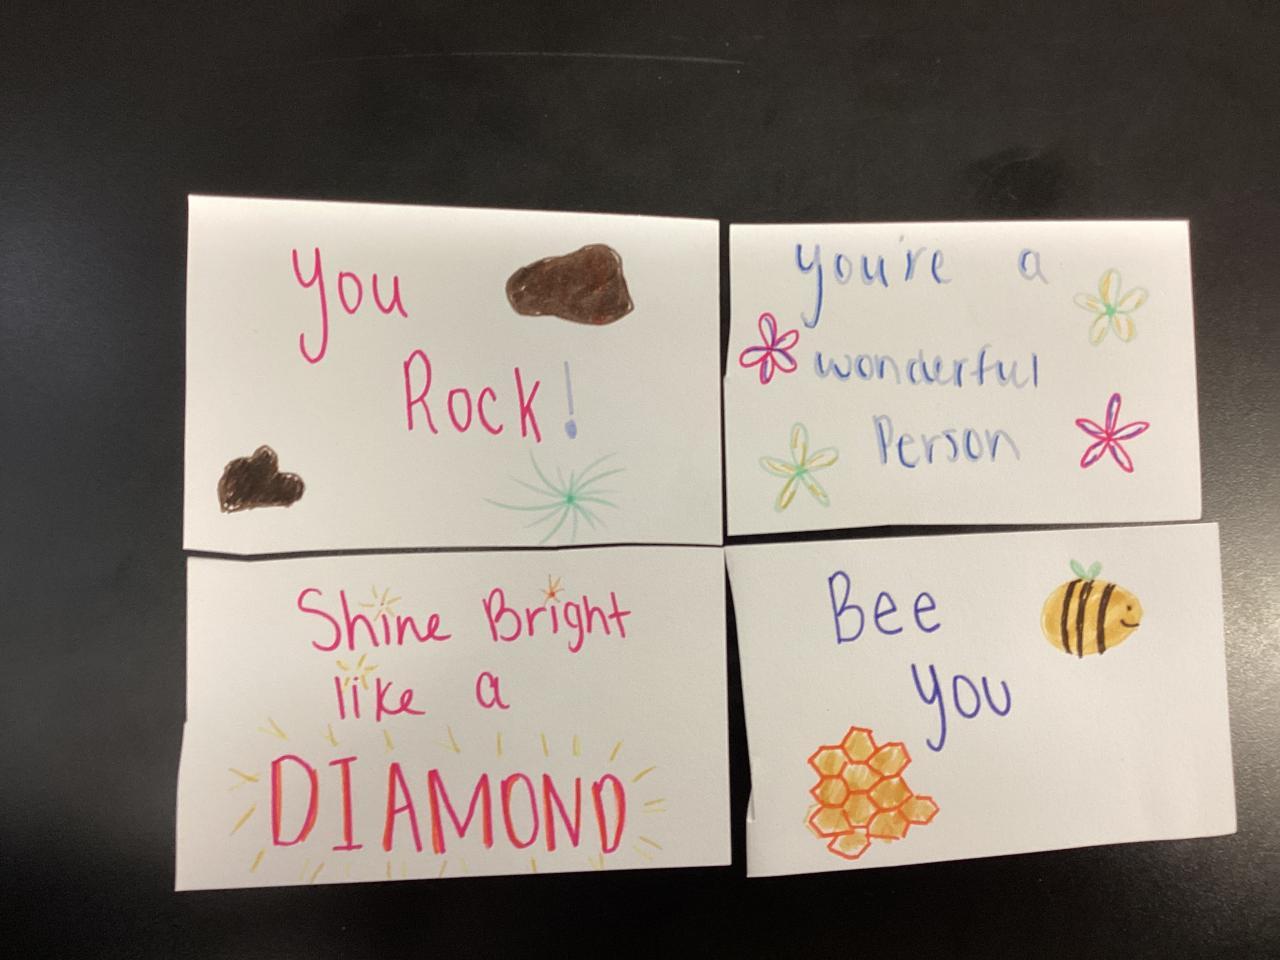 you
Rock!
you're a
wonderful
Person
Shine Bright
like a
DIAMOND
Bee
you